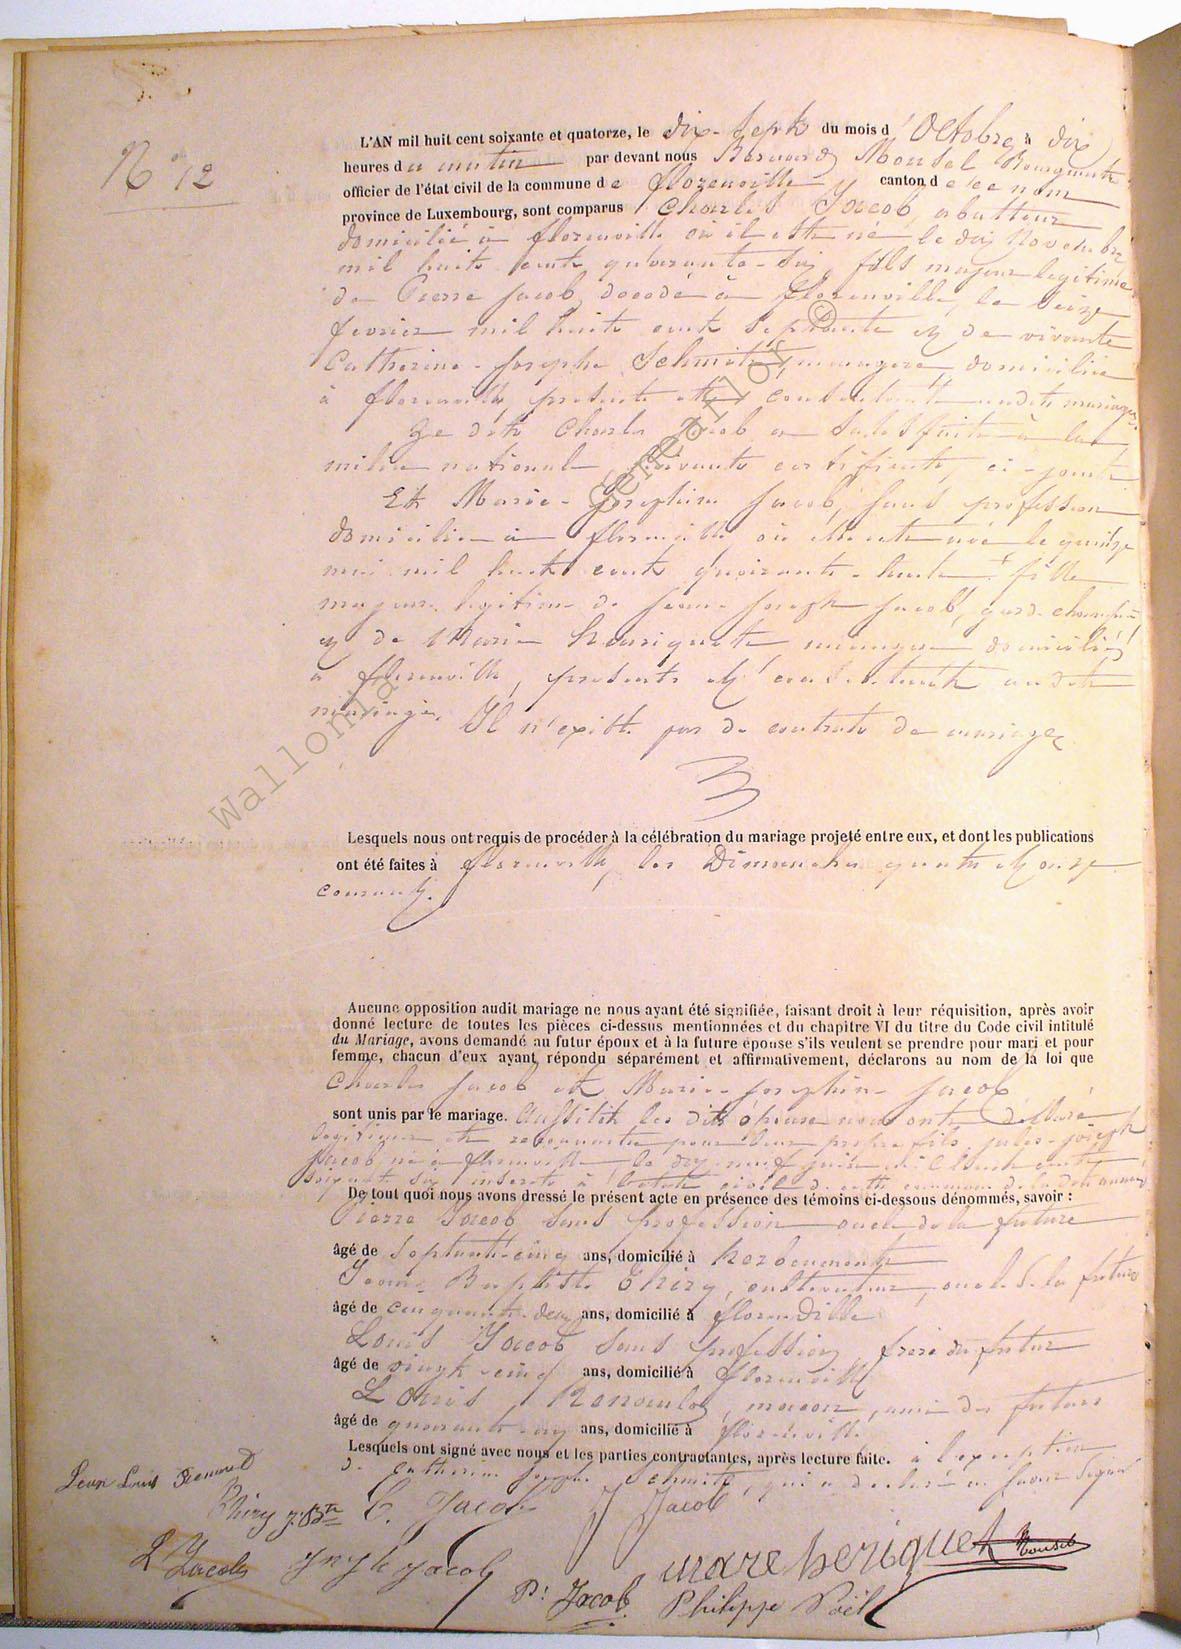 N° 12
L'AN mil huit cent soixante et quatorze, le dix-sept du mois d'Octobre à dix
heures du matin par devant nous Bernard Mousel Bourgmestre
officier de l'état civil de la commune de florenville canton de ce nom
province de Luxembourg, sont comparus 1° Charles Jacob,
domicilié à florenville où il est né le dix Novembre
mil huit cent quarante-six, fils majeur légitime
de Pierre Jacob décédé à florenville, le seize
février mil huit cent septante et de vivante
Catherine-Josephe Schmit, ménagère, domiciliée
à florenville, présente et consentante audit mariage.
Le dit Charles Jacob a satisfait à la
milice nationale, suivant certificat ci-joint
Et Marie-Joséphine Jacob, sans profession
domiciliée à florenville où elle est née le quinze
mai mil huit cent quarante-huit, fille
majeure légitime de Jean-Joseph Jacob, garde-champêtre
et de Marie Henriquet, ménagère domiciliés
à florenville, présents et consentants audit
mariage. Il n'existe pas de contrat de mariage
Lesquels nous ont requis de procéder à la célébration du mariage projeté entre eux, et dont les publications
ont été faites à florenville, les Dimanches quatre et onze
courant.
Aucune opposition audit mariage ne nous ayant été signifiée, faisant droit à leur réquisition, après avoir
donné lecture de toutes les pièces ci-dessus mentionnées et du chapitre VI du titre du Code civil intitulé
du Mariage, avons demandé au futur époux et à la future épouse s'ils veulent se prendre pour mari et pour
femme, chacun d'eux ayant répondu séparément et affirmativement, déclarons au nom de la loi que
Charles Jacob et Marie-Joséphine Jacob
sont unis par le mariage. Aussitôt les dits époux nous ont déclaré
légitimer et reconnaitre pour leur propre fils Jules-Joseph
Jacob né à florenville, le dix-neuf juin mil huit cent
soixante six inscrit à l'état civil de cette commune de la dite année
De tout quoi nous avons dressé le présent acte en présence des témoins ci-dessous dénommés, savoir :
Pierre Jacob sans profession oncle de la future
âgé de septante-cinq ans, domicilié à herbeumont
Jean-Baptiste Thiry, cultivateur, oncle de la future
âgé de cinquante-deux ans, domicilié à florenville
Louis Jacob sans profession, frère du futur
âgé de vingt-cinq ans, domicilié à florenville
Louis Renauld, maçon, ami des futurs
âgé de quarante ans, domicilié à florenville
Lesquels ont signé avec nous et les parties contractantes, après lecture faite. à l'exception
de Catherine Josephe Schmit, qui a déclaré ne savoir signer
Jean Louis Renauld
Thiry J: Bte C. Jacob J Jacob
L Jacob Jph Jacob mare heriquet Mousel
P: Jacob. Philippe Poël
Wallonia Genearlor ©